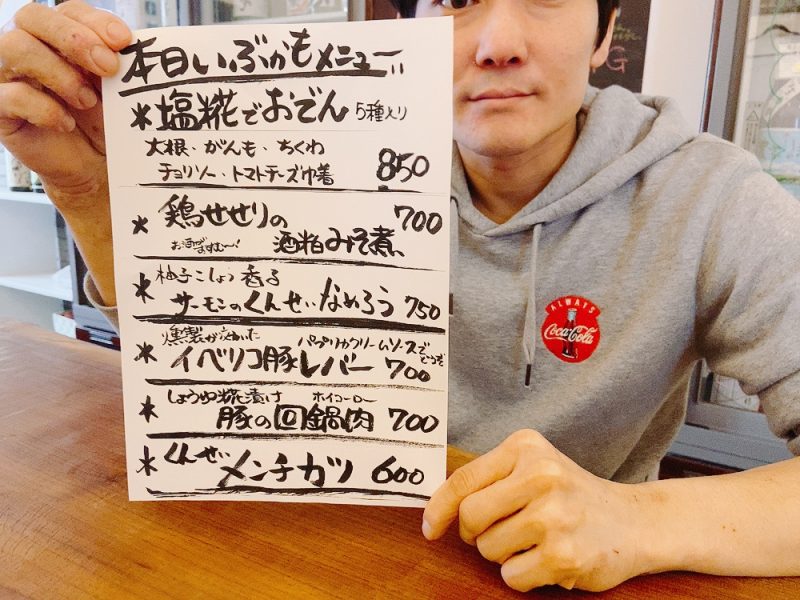 本日いぶかもメニュー
*塩糀でおでん 5種入り
大根・がんも・ちくわ
チョリソー・トマトチーズ巾着 850
*鶏せせりの 700
お酒がすすむ〜! 酒粕みそ煮
柚子こしょう香る
*サーモンのくんせいなめろう 750
燻製が効いた パプリカクリームソースでどうぞ
*イベリコ豚レバー 700
しょうゆ糀漬け ホイコーロー
*豚の回鍋肉 700
*くんせいメンチカツ 600
ALWAYS
Coca-Cola
G